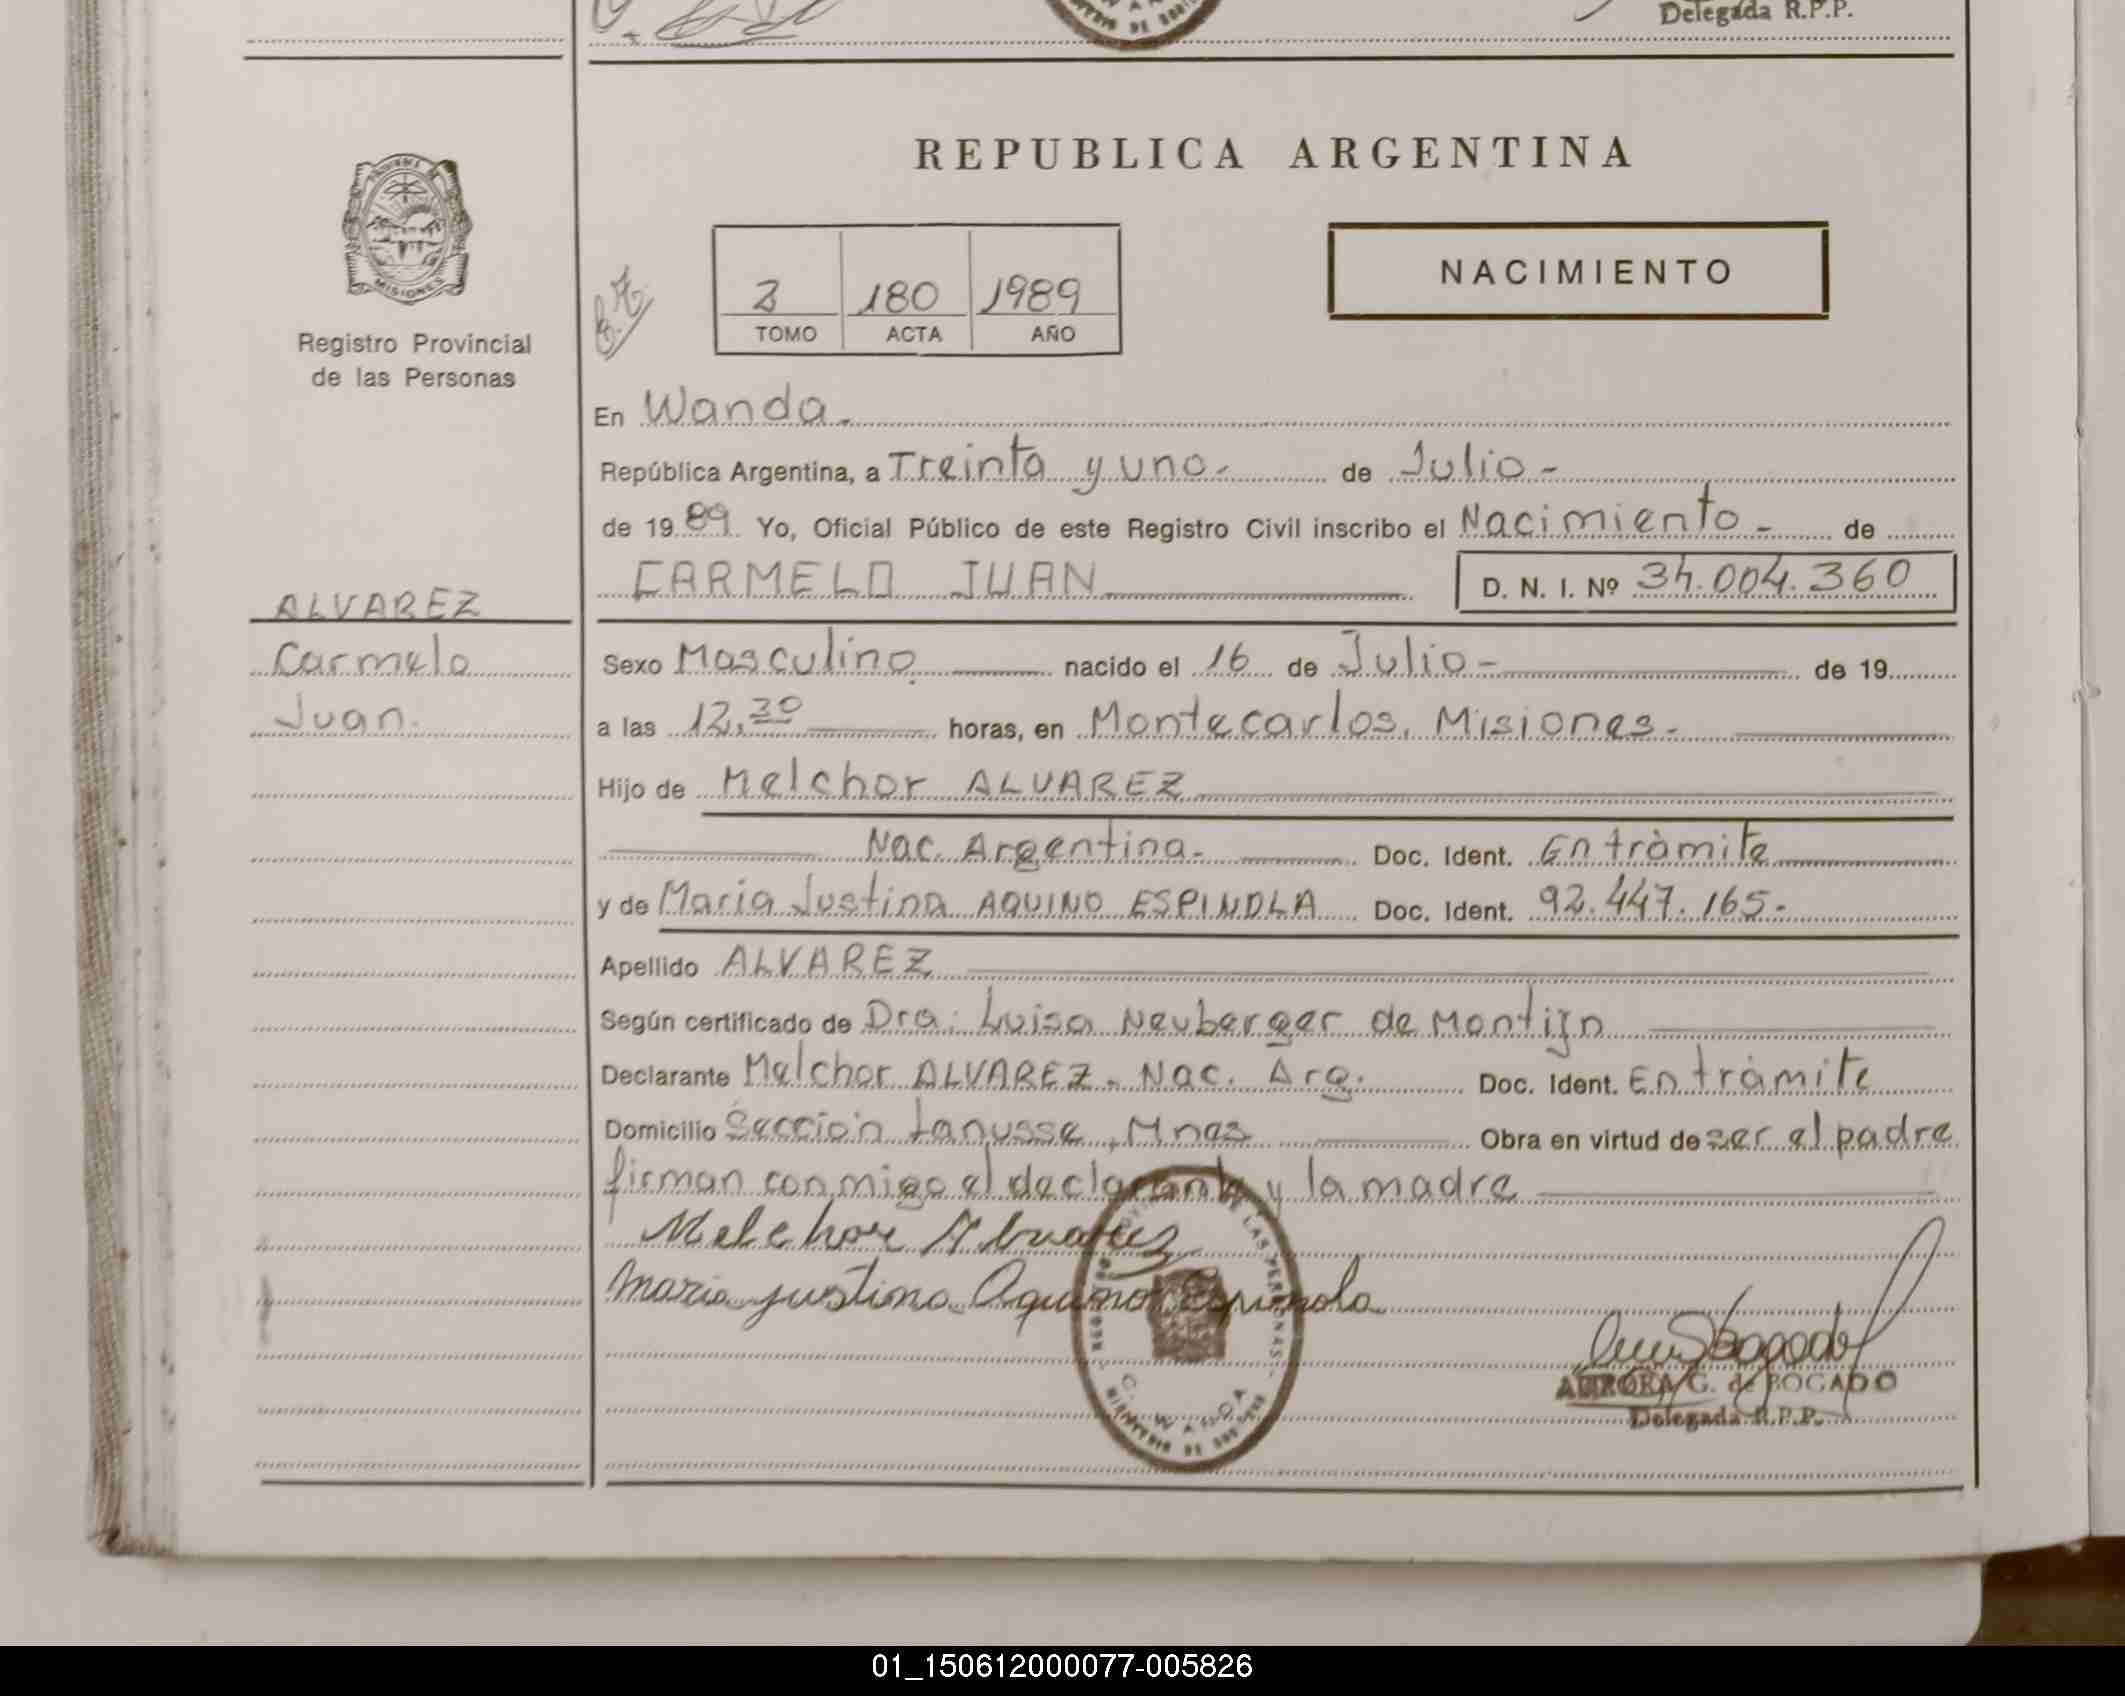 Delegada R.P.P.
REPUBLICA ARGENTINA
MISIONES
Registro Provincial
de las Personas
2 180 1989
TOMO ACTA AÑO
NACIMIENTO
En Wanda.
República Argentina, a Treinta y uno.- de Julio-
de 19 89. Yo, Oficial Público de este Registro Civil inscribo el Nacimiento- de
CARMELO JUAN D. N. I. Nº 34.004.360
ALVAREZ
Carmelo
Juan.
Sexo Masculino nacido el 16 de Julio- de 19
a las 12,30 horas, en Montecarlos, Misiones.-
Hijo de Melchor ALVAREZ
Nac. Argentina.- Doc. Ident. En tràmite
y de Maria Justina AQUINO ESPINOLA Doc. Ident. 92.447.165.-
Apellido ALVAREZ
Según certificado de Dra. Luisa Neuberger de Montijo
Declarante Melchor ALVAREZ. Nac. Arg. Doc. Ident. En tràmite
Domicilio Sección Lanusse, Mnes Obra en virtud de ser el padre
firman conmigo el declarante y la madre
Melchor Albuarez
Maria justina Aquino Espinola
WANDA
AURORA G. de BOGADO
Delegada R.P.P.
01_150612000077-005826